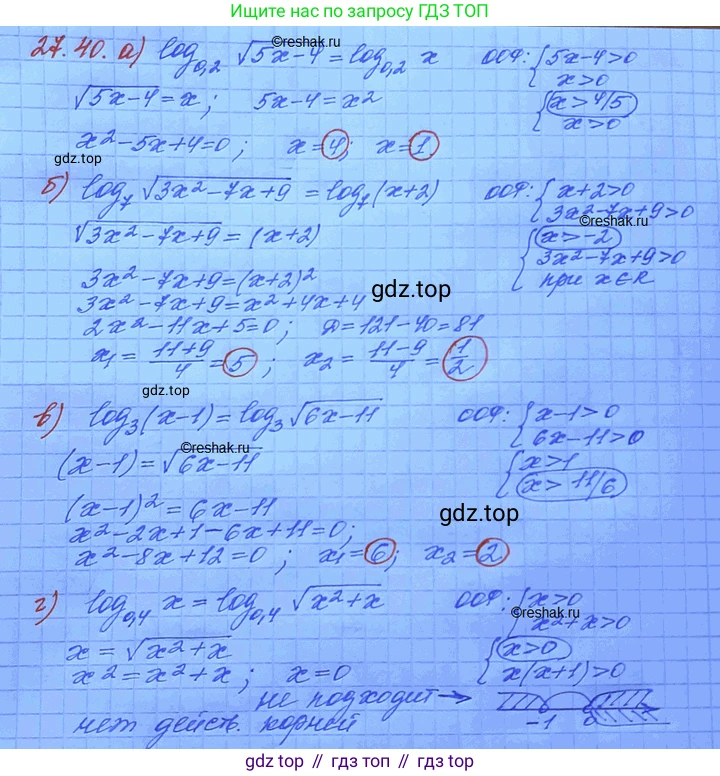 Ищите нас по запросу ГДЗ ТОП
27.40. а) log₀,₂ √(5x-4) = log₀,₂ x ООФ: {5x-4>0
©reshak.ru
x>0
√(5x-4) = x; 5x-4=x² {x>4/5
x>0
x²-5x+4=0; x=4; x=1
gdz.top
б) log₇ √(3x²-7x+9) = log₇(x+2) ООФ: {x+2>0
3x²-7x+9>0
©reshak.ru
√(3x²-7x+9) = (x+2) {x>-2
3x²-7x+9>0
при x∈R
3x²-7x+9=(x+2)²
gdz.top
3x²-7x+9=x²+4x+4
2x²-11x+5=0; D=121-40=81
x₁ = (11+9)/4 = 5; x₂ = (11-9)/4 = 1/2
gdz.top
в) log₃(x-1) = log₃ √(6x-11) ООФ: {x-1>0
6x-11>0
©reshak.ru
(x-1) = √(6x-11) {x>1
x>11/6
(x-1)² = 6x-11
gdz.top
x²-2x+1-6x+11=0;
x²-8x+12=0; x₁=6; x₂=2
г) log₀,₄ x = log₀,₄ √(x²+x) ООФ: {x>0
©reshak.ru
x²+x>0
x = √(x²+x) {x>0
x² = x²+x; x=0 x(x+1)>0
не подходит →
-1 0
нет действ. корней
gdz.top // гдз.топ // gdz.top